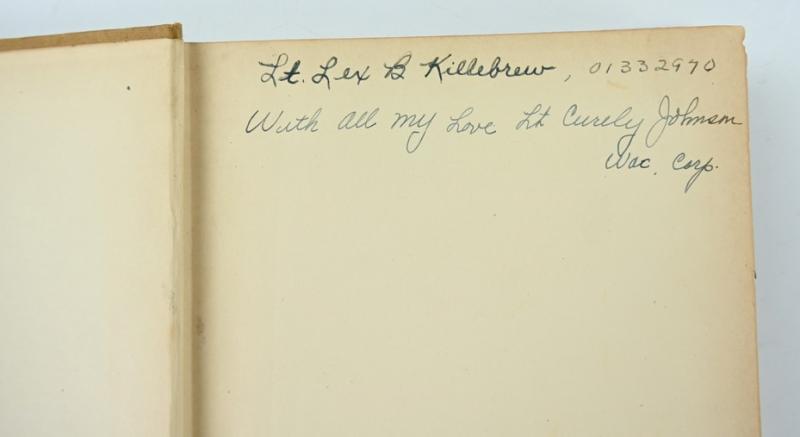 Lt. Lex B Killebrew, 01332970
With all my Love Lt Curely Johnson
Wac. Corp.